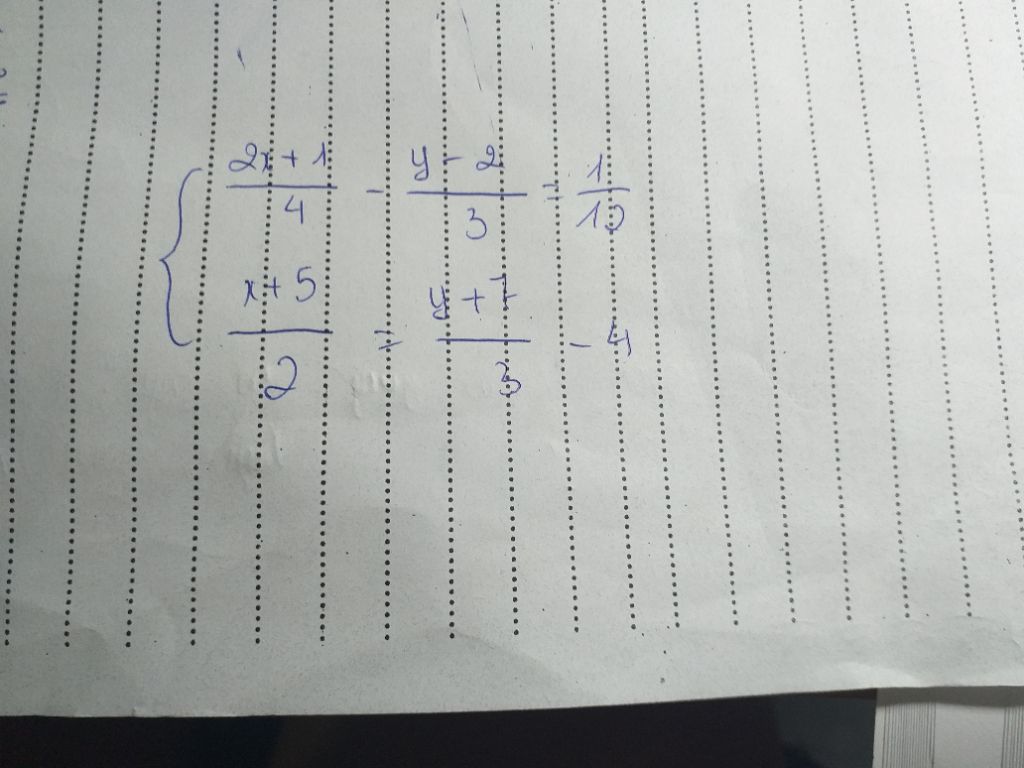 { (2x + 1)/4 - (y - 2)/3 = 1/12
(x + 5)/2 = (y + 7)/3 - 4